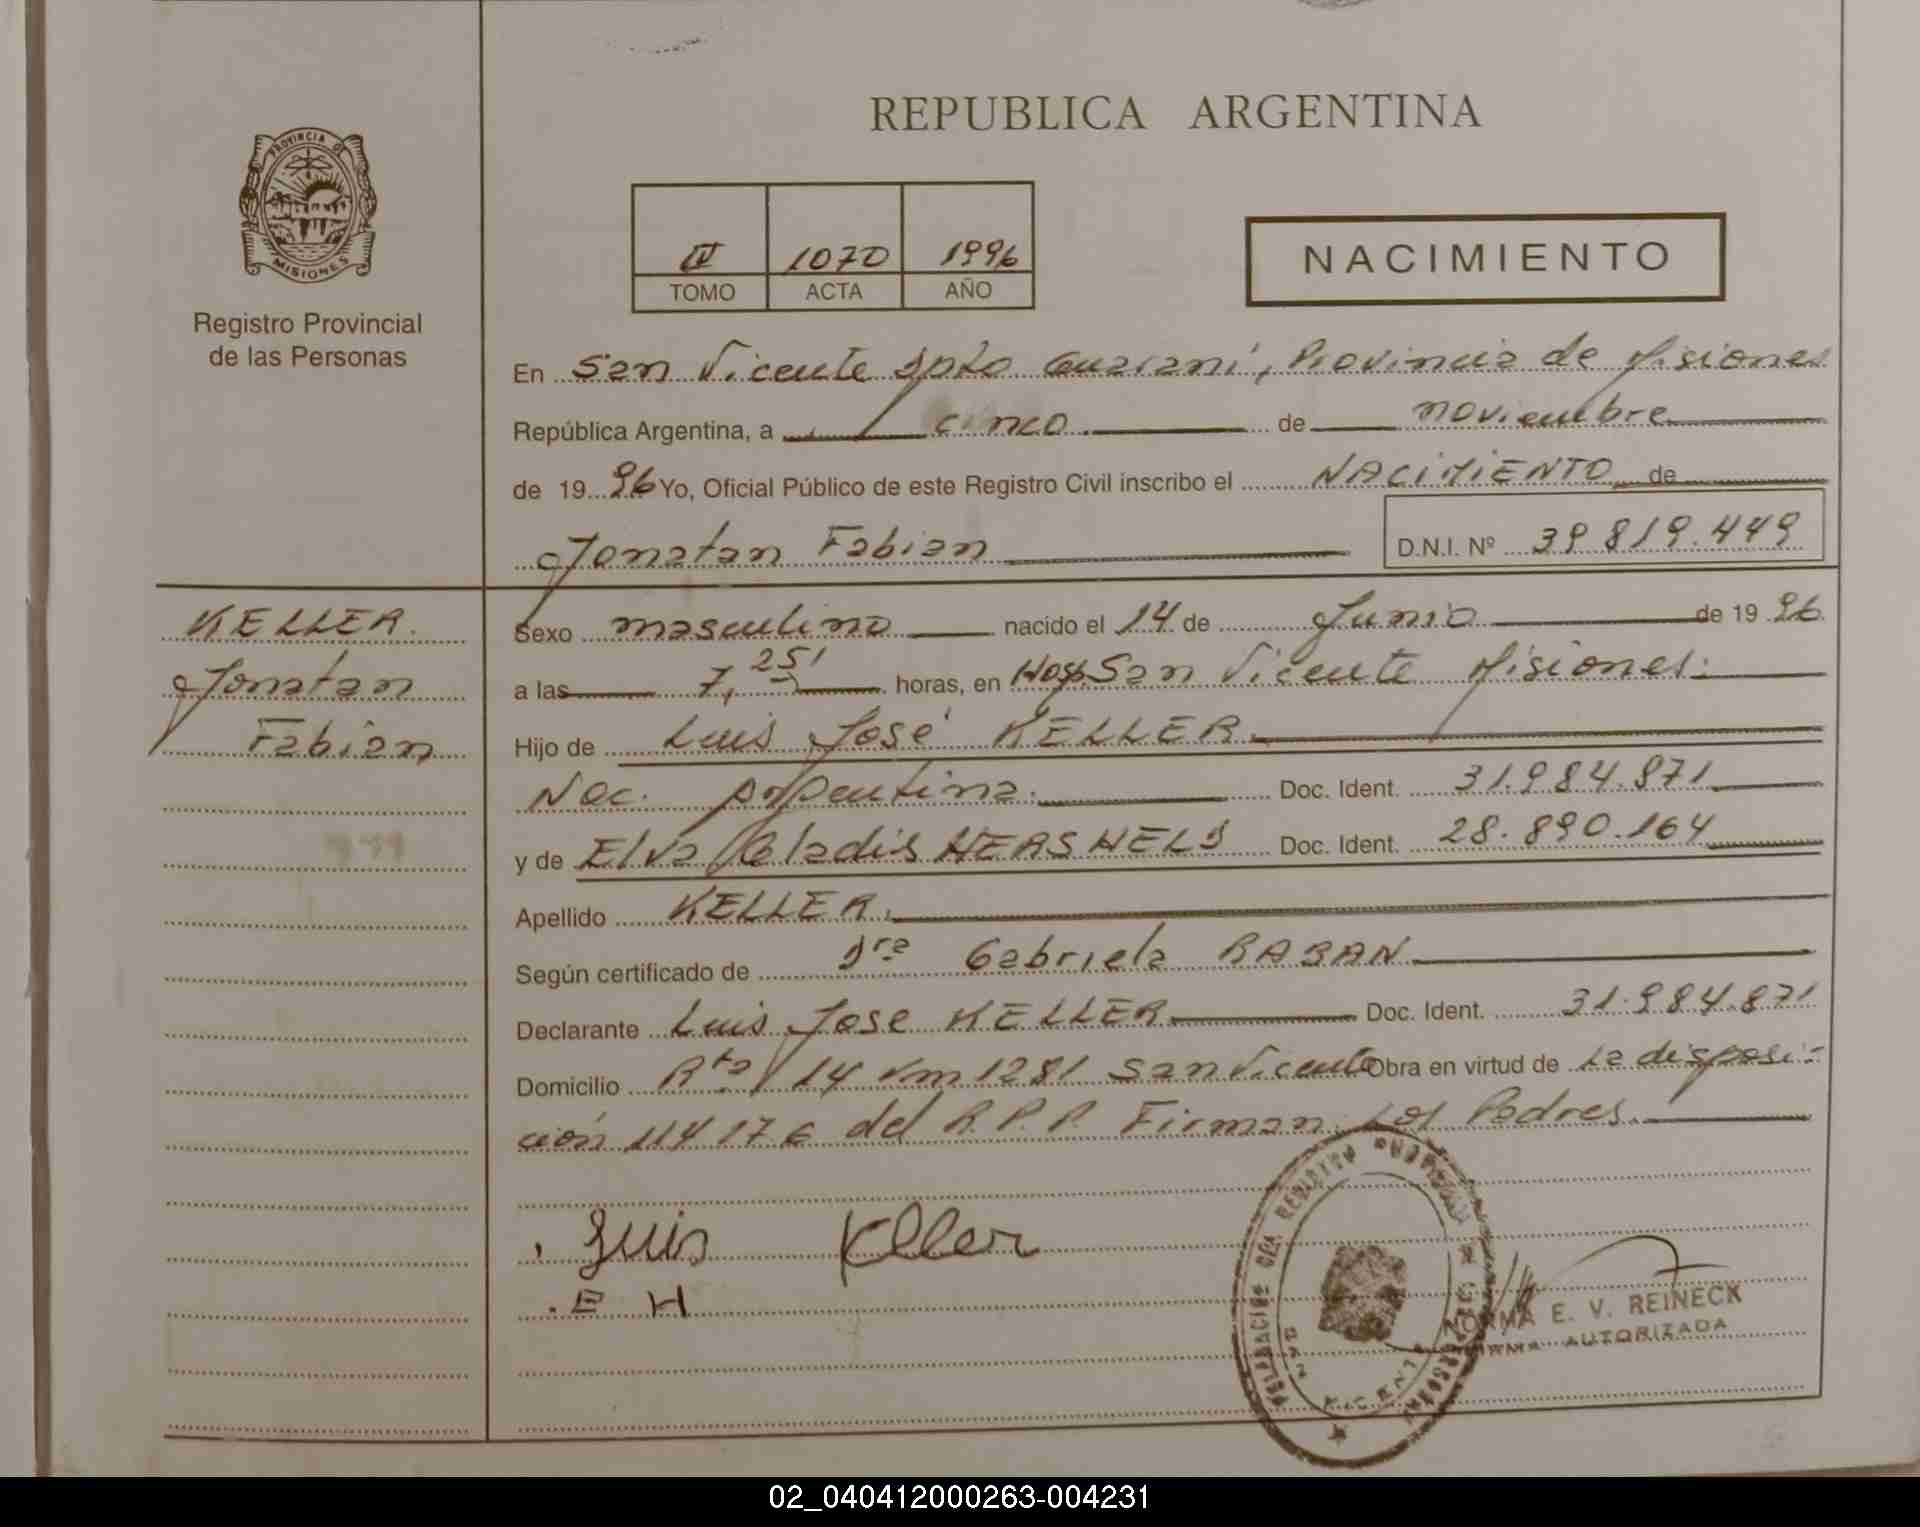 REPUBLICA ARGENTINA
PROVINCIA DE
MISIONES
Registro Provincial
de las Personas
IV 1070 1996
TOMO ACTA AÑO
NACIMIENTO
En San Vicente Dpto Guaraní, Provincia de Misiones
República Argentina, a cinco de noviembre
de 1996 Yo, Oficial Público de este Registro Civil inscribo el NACIMIENTO de
Jonatan Fabian D.N.I. Nº 39.819.449
KELLER
Jonatan
Fabián
Sexo masculino nacido el 14 de Junio de 1996
a las 7,25' horas, en Hosp. San Vicente Misiones.
Hijo de Luis José KELLER
Nac. Argentina. Doc. Ident. 31.984.871
y de Elva Gladis HERSHELD Doc. Ident. 28.890.164
Apellido KELLER.
Según certificado de Dra Gabriela RABAN
Declarante Luis Jose KELLER Doc. Ident. 31.984.871
Domicilio Rta 14 Km 1281 San Vicente Obra en virtud de La disposi-
ción 114176 del R.P.P. Firman Los Padres.
Luis Keller
E H
NORMA E. V. REINECK
FIRMA AUTORIZADA
02_040412000263-004231